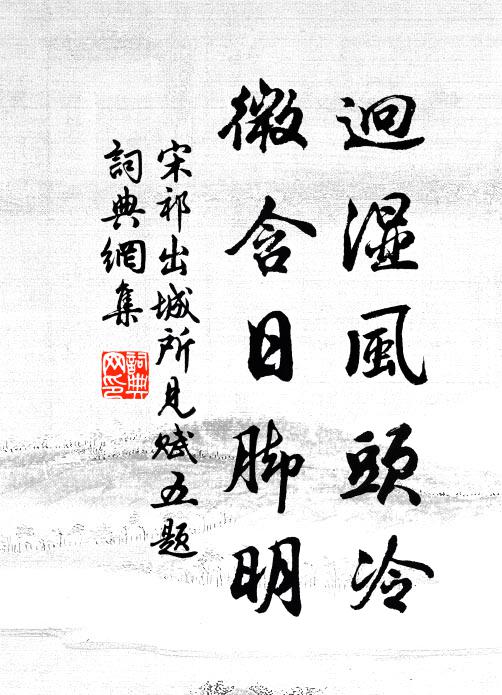 迥湿風頭冷
微含日脚明
宋祁出城所見賦五題
詞典網集
詞典网印